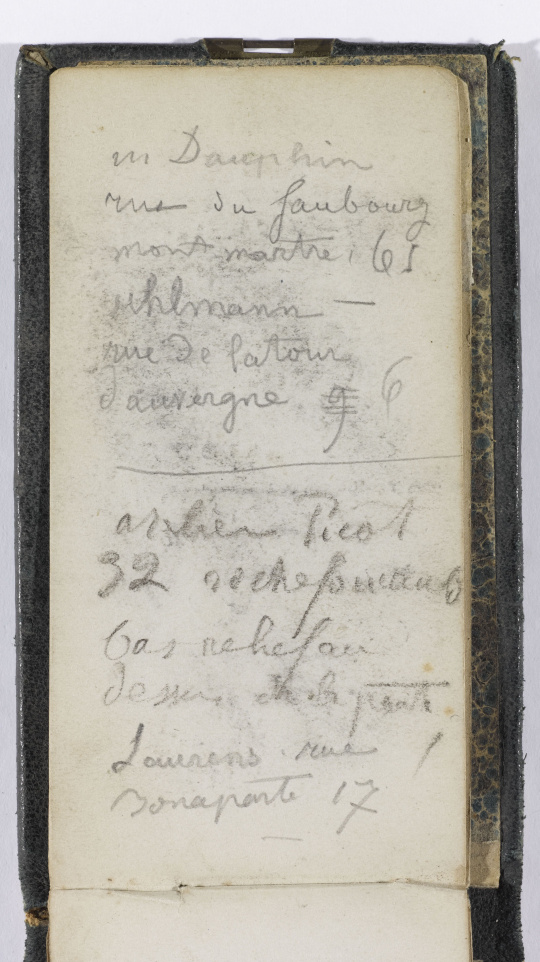 m Dauphin
rue du faubourg
montmartre, 61
uhlmann —
rue de latour
d'auvergne 6
atelier Picot
32
bas relief au
dessus de la porte
Laurens. rue
Bonaparte 17